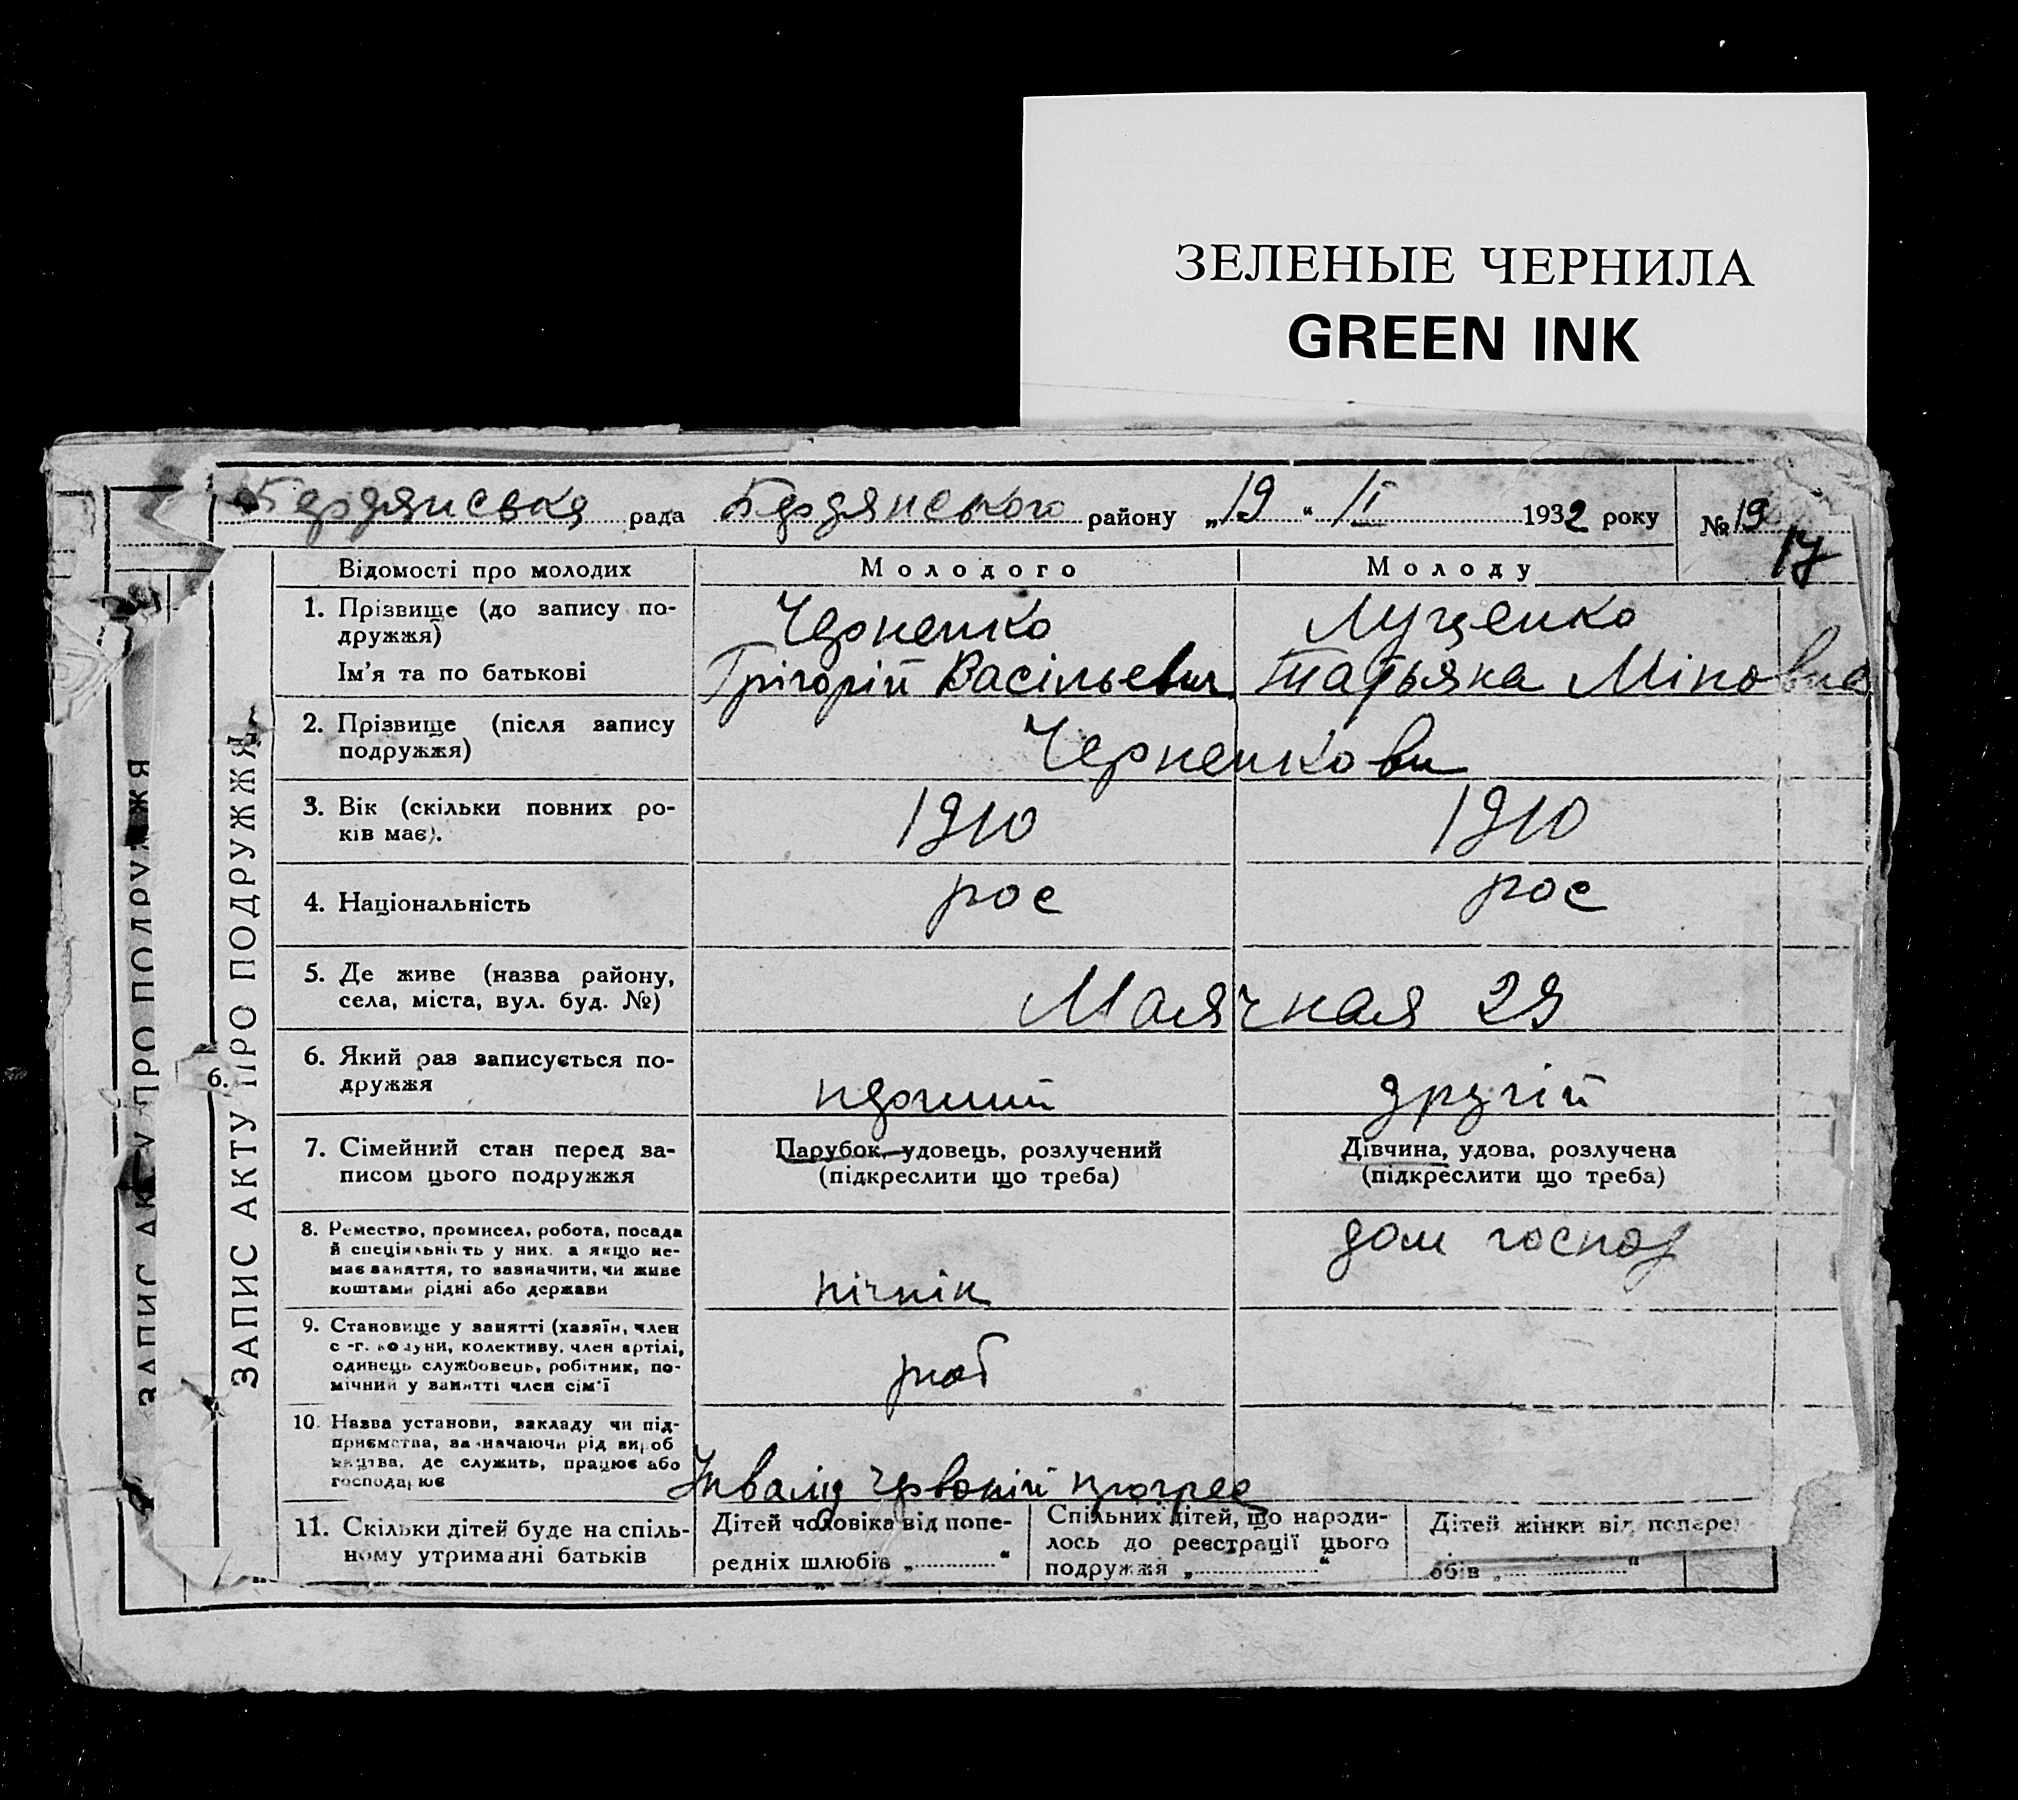 ЗЕЛЕНЫЕ ЧЕРНИЛА
GREEN INK
Бердянська рада Бердянського району „19 “ II 1932 року №19
17
Відомості про молодих Молодого Молоду
1. Прізвище (до запису по-
дружжя) Черненко Луценко
Ім'я та по батькові Грігорій Васільевич Татьяна Міновна
2. Прізвище (після запису
подружжя) Черненкови
3. Вік (скільки повних ро-
ків має). 1910 1910
4. Національність рос рос
5. Де живе (назва району,
села, міста, вул. буд. №) Маячная 29
6. Який раз записується по-
дружжя перший другій
6.
7. Сімейний стан перед за-
писом цього подружжя
Парубок, удовець, розлучений
(підкреслити що треба)
Дівчина, удова, розлучена
(підкреслити що треба)
8. Ремество, промисел, робота, посада
й спеціяльність у них, а якщо не-
має заняття, то зазначити, чи живе
коштами рідні або держави
пічнік дом господ
9. Становище у занятті (хазяїн, член
с.-г. комуни, колективу, член артілі,
одинець службовець, робітник, по-
мічний у занятті член сім'ї
роб
10. Назва установи, закладу чи під-
приємства, зазначаючи рід вироб
ництва, де служить, працює або
господарює
Інвалід червоній прогрес
11. Скільки дітей буде на спіль-
ному утриманні батьків
Дітей чоловіка від попе-
редніх шлюбів „ “
Спільних дітей, що народи-
лось до реєстрації цього
подружжя „ “
Дітей жінки від попере
бів „ “
ЗАПИС АКТУ ПРО ПОДРУЖЖЯ
ЗАПИС АКТУ ПРО ПОДРУЖЖЯ